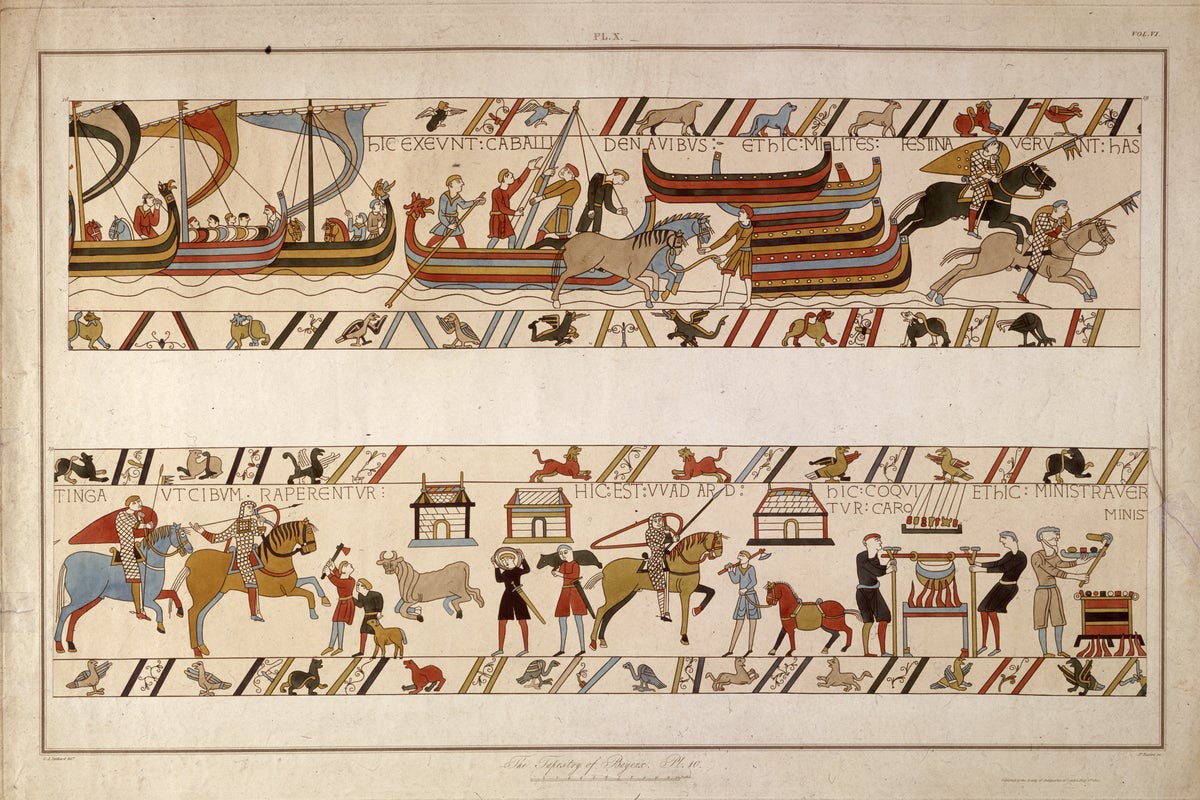 PL. X.
VOL. VI.
HIC EXEVNT: CABALLI DENAVIBUS:- ETHIC: MILITES: FESTINA VERVNT: HAS
TINGA VT CIBVM. RAPERENTVR: HIC: EST: VVAD ARD: HIC: COQVI ETHIC: MINISTRAVER
TVR: CARO MINIS
The Tapestry of Bayeux. Pl. 10.